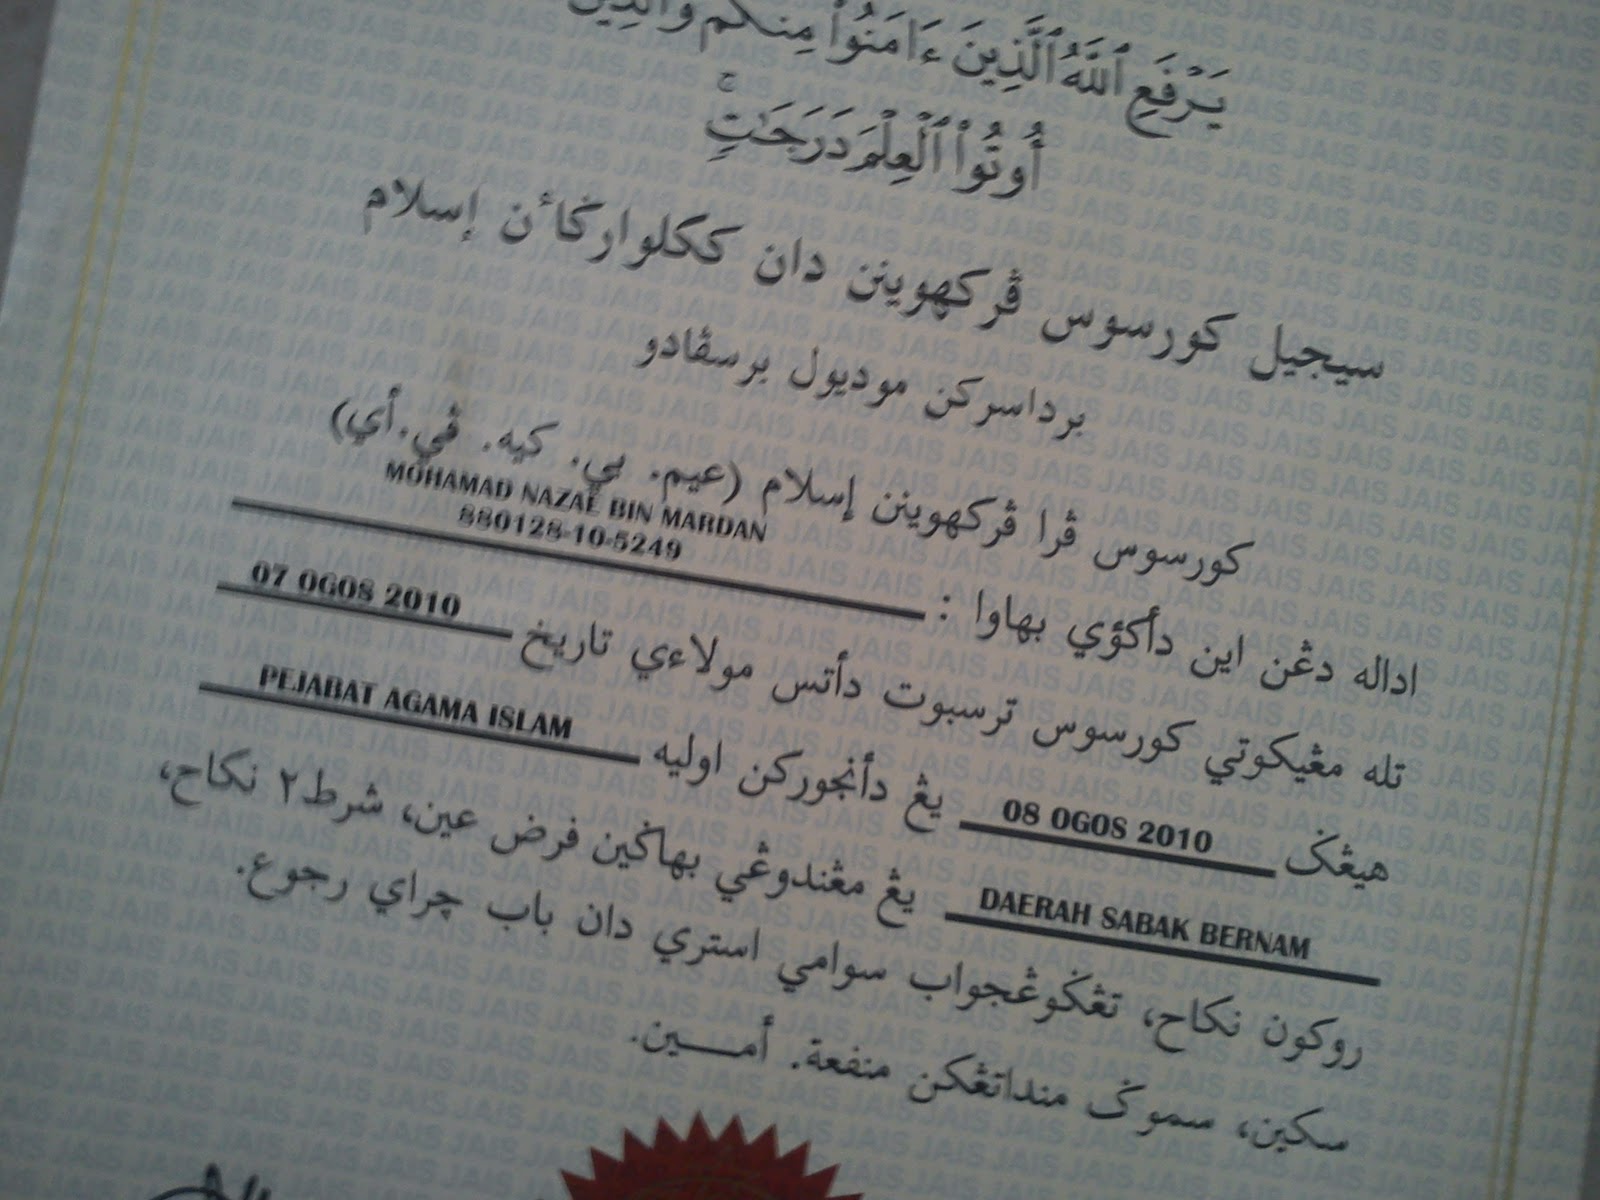 يَرْفَعِ ٱللَّهُ ٱلَّذِينَ ءَامَنُوا۟ مِنكُمْ وَٱلَّذِينَ
أُوتُوا۟ ٱلْعِلْمَ دَرَجَـٰتٍ ۚ
سيجيل كورسوس ڤركهوينن دان ككلوارݢاٴن إسلام
برداسركن موديول برسڤادو
كورسوس ڤرا ڤركهوينن إسلام (عيم. بي. كيه. ڤي.أي)
MOHAMAD NAZAE BIN MARDAN
880128-10-5249
اداله دڠن اين دأكوٴي بهاوا :
تله مڠيكوتي كورسوس ترسبوت دأتس مولاءي تاريخ 07 OGOS 2010
هيڠݢ 08 OGOS 2010 يڠ دأنجوركن اوليه PEJABAT AGAMA ISLAM
DAERAH SABAK BERNAM يڠ مڠندوڠي بهاݢين فرض عين، شرط٢ نكاح،
روكون نكاح، تڠݢوڠجواب سوامي استري دان باب چراي رجوع.
سكين، سموݢ منداتڠكن منفعة. أمــــين.
JAIS